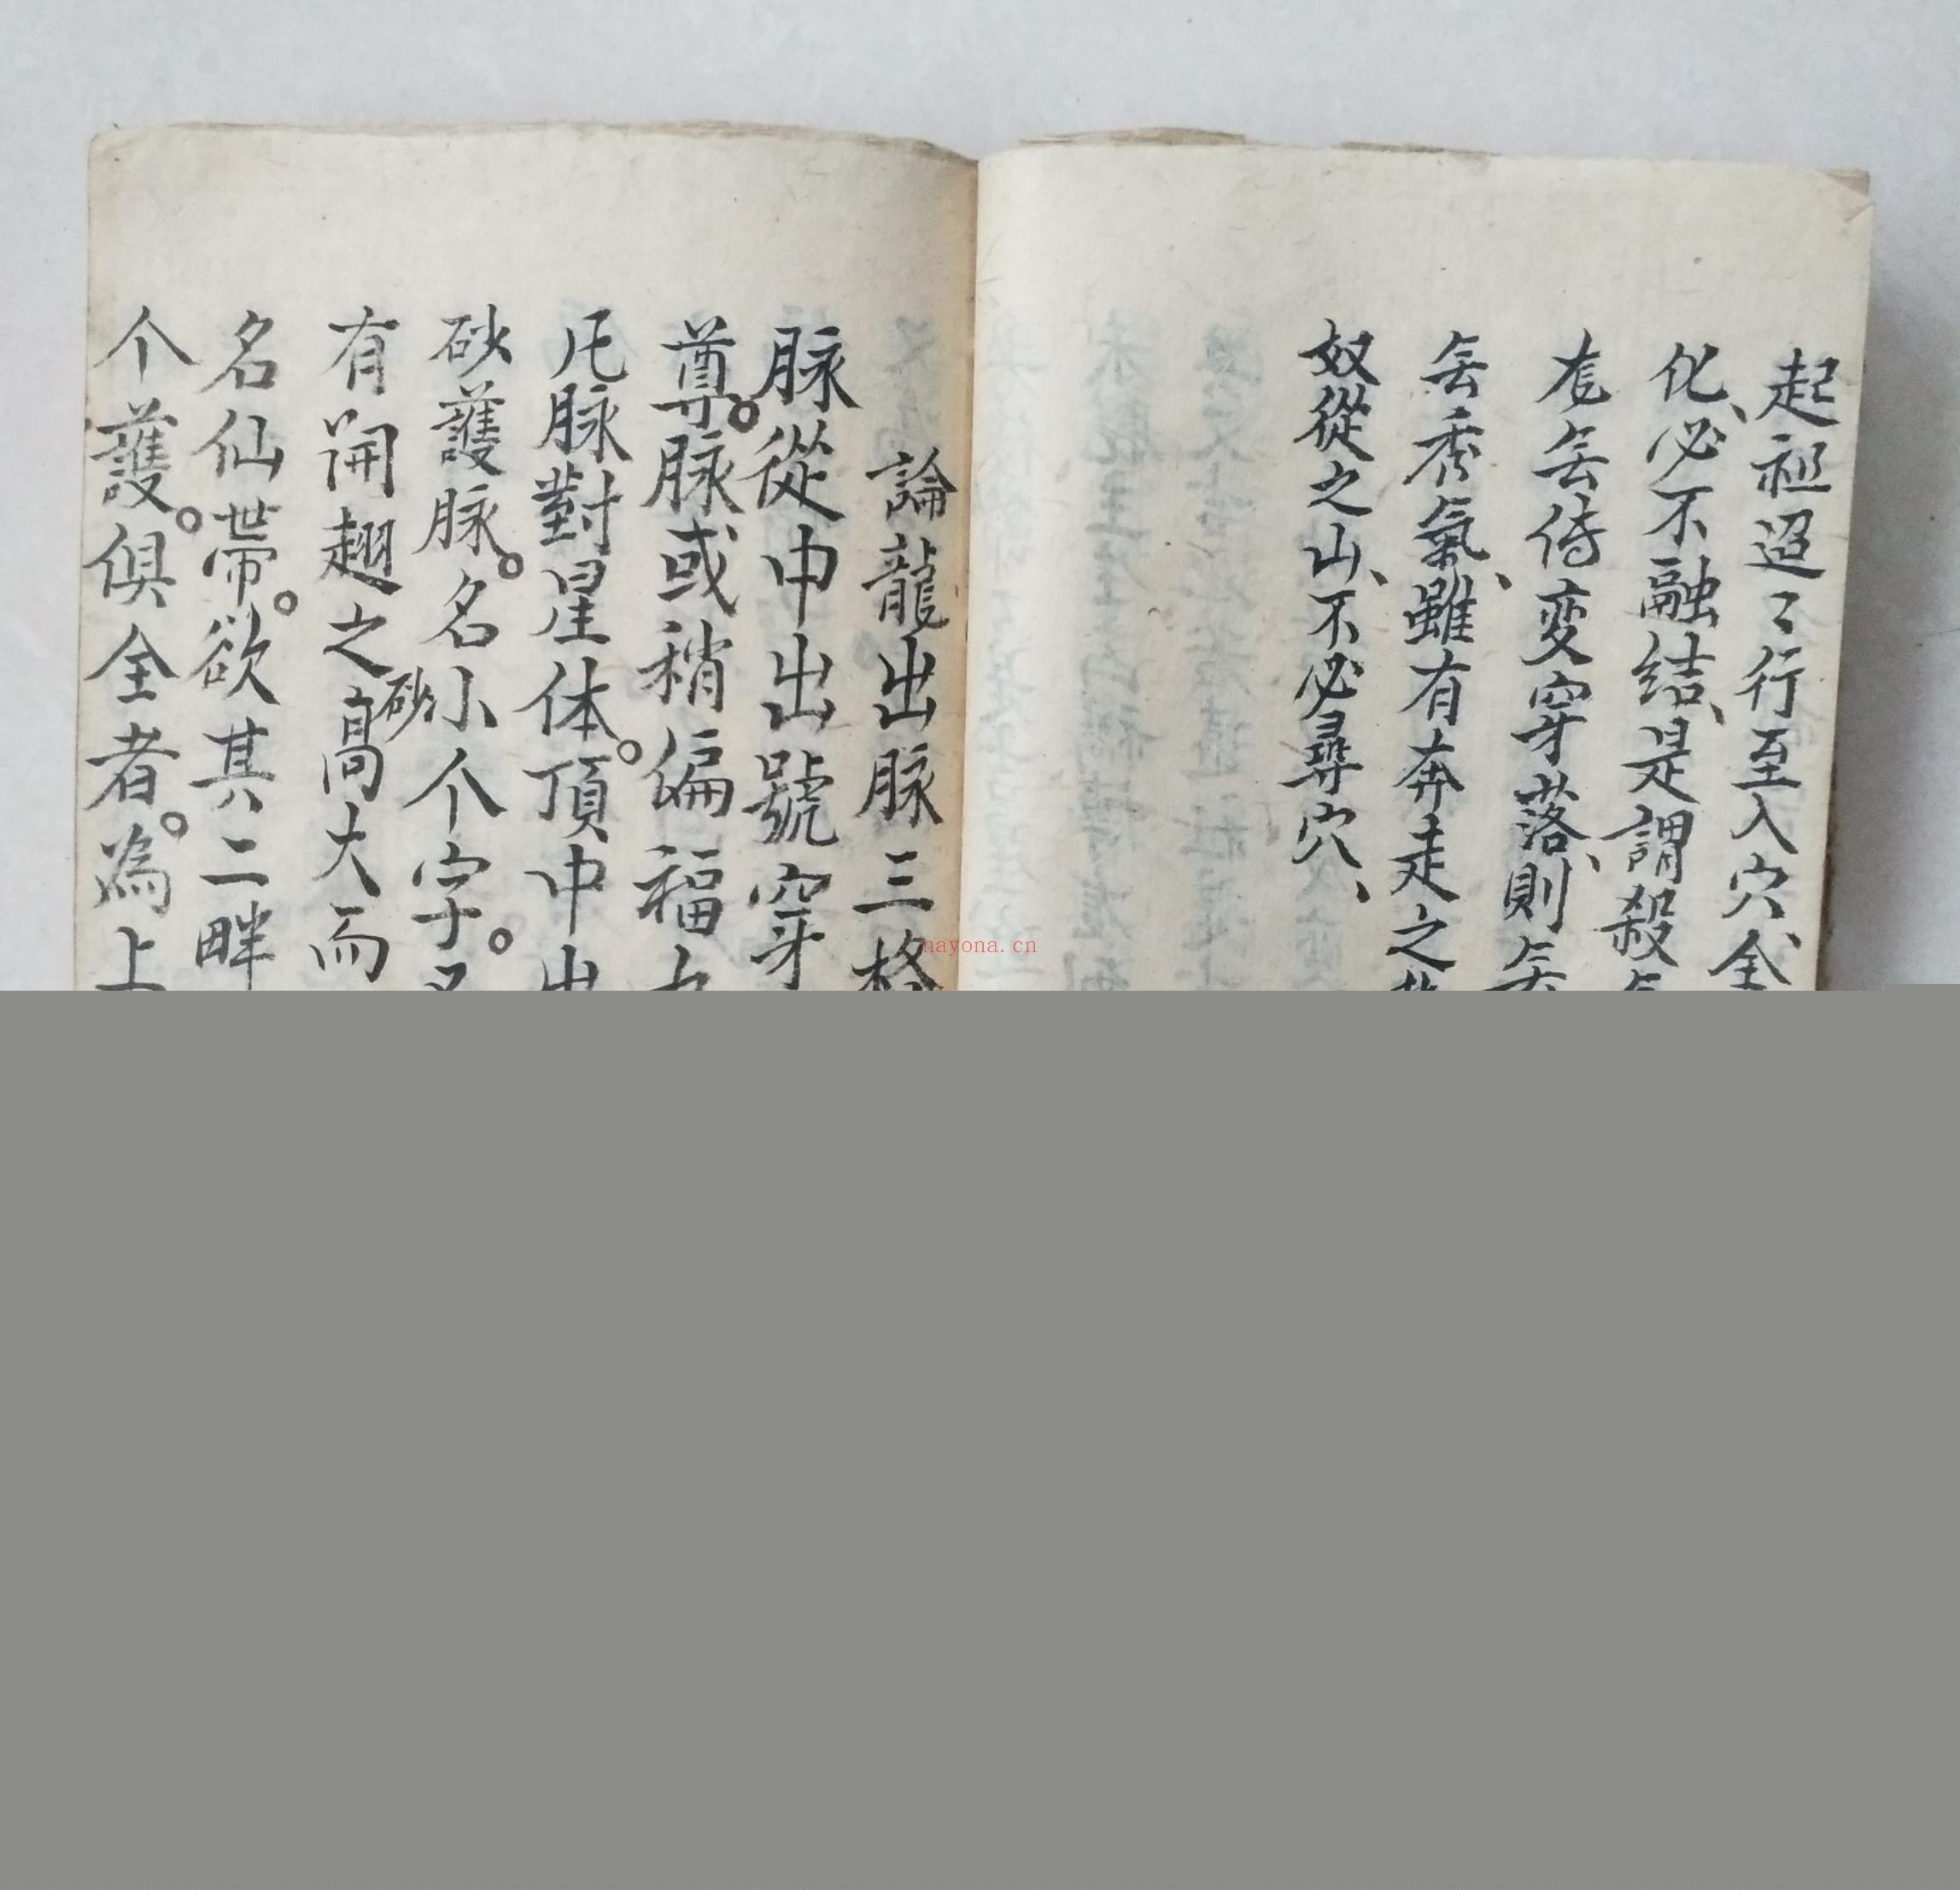 起祖迢〻行至入穴、全
化、必不融結、是謂殺
旄无俻变穿落、則
无秀氣、雖有奔走之
奴從之山、不必尋穴、
論龍出脉三格
脉從中出號穿
尊。脉或稍偏福
凡脉對星体。頂中出
砂護脉。名小个字。又
有開翅之砂高大而
名仙带。欲其二畔
个護。俱全者。為上
nayona.cn